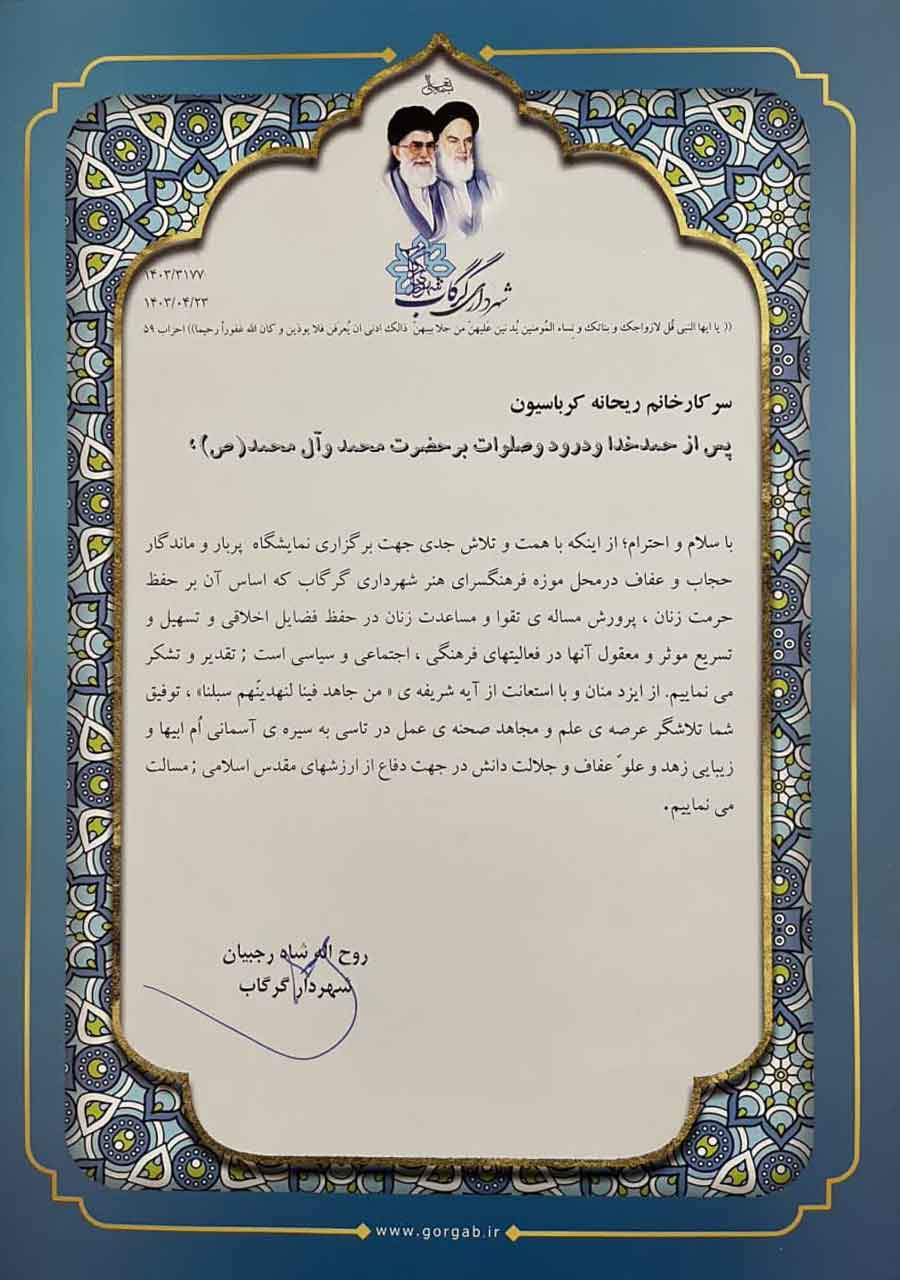 بسمه تعالی
شهرداری گرگاب
۱۴۰۳/۳۱۷۷
۱۴۰۳/۰۴/۲۳
(( یا ایها النبی قُل لازواجک و بناتک و نِساء المُومنین یُدنین عَلیهنّ مِن جلابیبهنّ ذالک ادنی ان یُعرَفن فلا یوذین و کان الله غفوراً رحیما)) احزاب ۵۹
سرکارخانم ریحانه کرباسیون
پس از حمدخدا ودرود وصلوات برحضرت محمد وآل محمد(ص)؛
با سلام و احترام؛ از اینکه با همت و تلاش جدی جهت برگزاری نمایشگاه پربار و ماندگار
حجاب و عفاف درمحل موزه فرهنگسرای هنر شهرداری گرگاب که اساس آن بر حفظ
حرمت زنان ، پرورش مساله ی تقوا و مساعدت زنان در حفظ فضایل اخلاقی و تسهیل و
تسریع موثر و معقول آنها در فعالیتهای فرهنگی ، اجتماعی و سیاسی است ; تقدیر و تشکر
می نماییم. از ایزد منان و با استعانت از آیه شریفه ی « من جاهد فینا لنهدینّهم سبلنا» ، توفیق
شما تلاشگر عرصه ی علم و مجاهد صحنه ی عمل در تاسی به سیره ی آسمانی اُم ابیها و
زیبایی زهد و علوّ عفاف و جلالت دانش در جهت دفاع از ارزشهای مقدس اسلامی ; مسالت
می نماییم.
روح اله شاه رجبیان
شهردار گرگاب
www.gorgab.ir